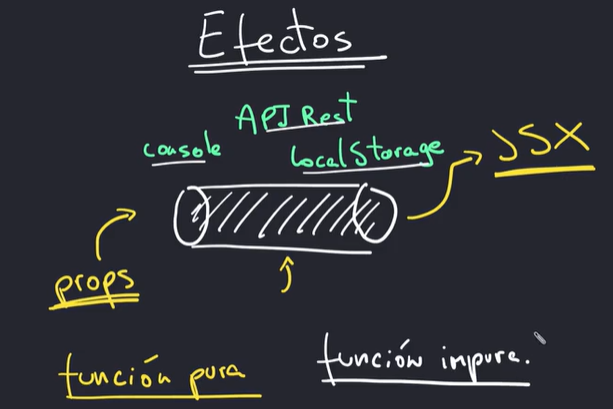 Efectos
API Rest
console
LocalStorage
JSX
props
función pura
función impura.